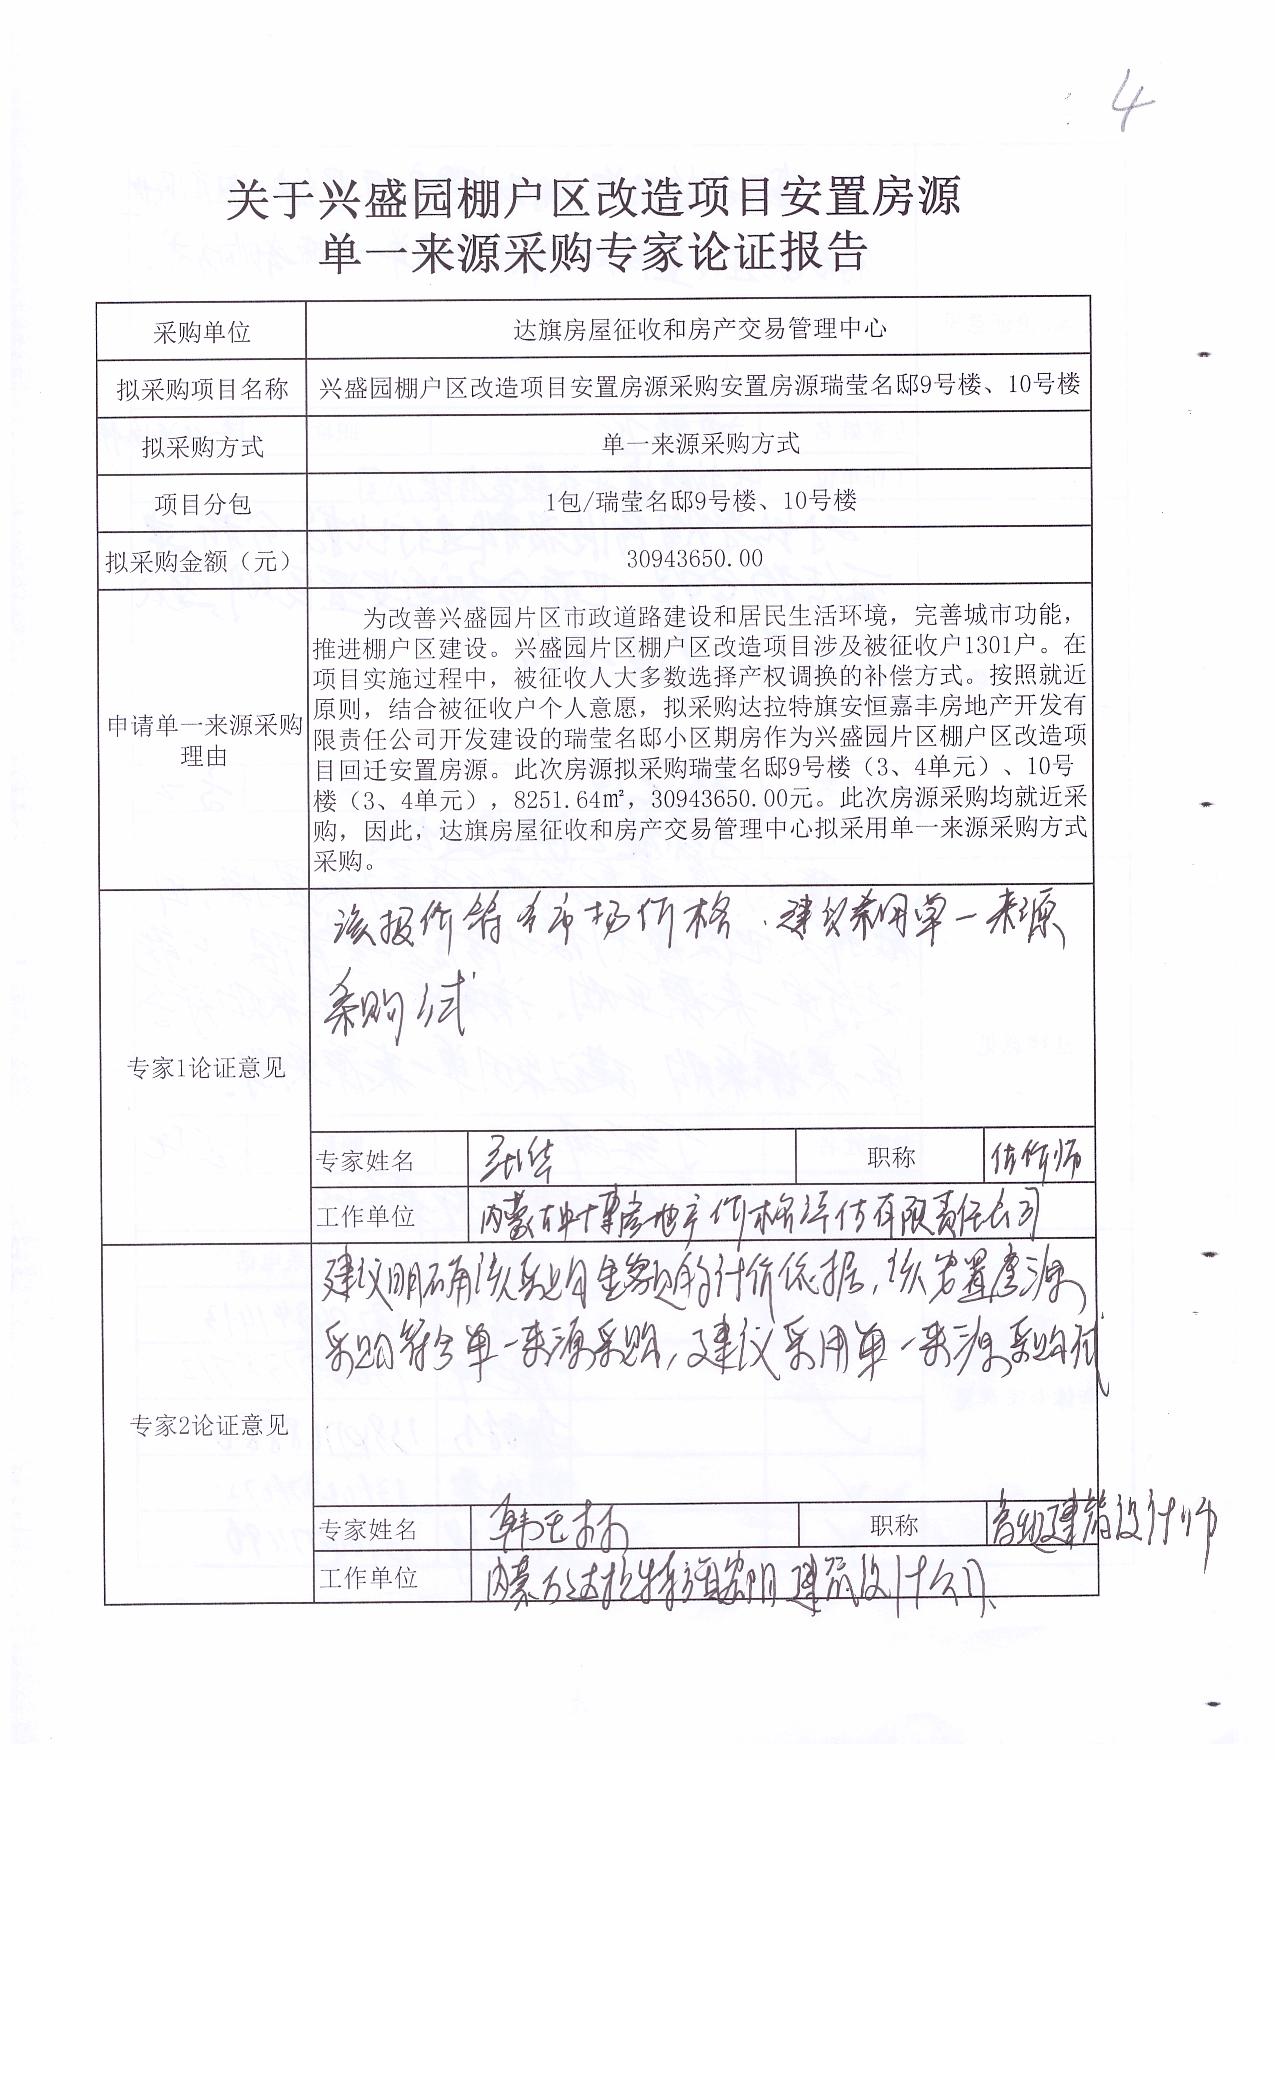 4
关于兴盛园棚户区改造项目安置房源
单一来源采购专家论证报告
采购单位
达旗房屋征收和房产交易管理中心
拟采购项目名称
兴盛园棚户区改造项目安置房源采购安置房源瑞莹名邸9号楼、10号楼
拟采购方式
单一来源采购方式
项目分包
1包/瑞莹名邸9号楼、10号楼
拟采购金额（元）
30943650.00
申请单一来源采购
理由
为改善兴盛园片区市政道路建设和居民生活环境，完善城市功能，
推进棚户区建设。兴盛园片区棚户区改造项目涉及被征收户1301户。在
项目实施过程中，被征收人大多数选择产权调换的补偿方式。按照就近
原则，结合被征收户个人意愿，拟采购达拉特旗安恒嘉丰房地产开发有
限责任公司开发建设的瑞莹名邸小区期房作为兴盛园片区棚户区改造项
目回迁安置房源。此次房源拟采购瑞莹名邸9号楼（3、4单元）、10号
楼（3、4单元），8251.64㎡，30943650.00元。此次房源采购均就近采
购，因此，达旗房屋征收和房产交易管理中心拟采用单一来源采购方式
采购。
专家1论证意见
该报价符合市场价格、建议采用单一来源
采购方式
专家姓名
职称
估价师
工作单位
内蒙古 房地产价格评估有限责任公司
专家2论证意见
建议明确该采购金额的计价依据，该安置房源
采购符合单一来源采购，建议采用单一来源采购方式
专家姓名
韩玉林
职称
高级建筑设计师
工作单位
内蒙古达拉特旗 建筑设计公司